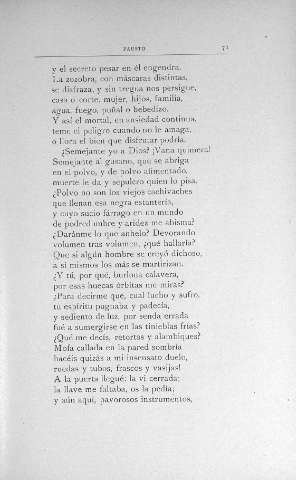 FAUSTO 71
y el secreto pesar en él engendra.
La zozobra, con máscaras distintas,
se disfraza, y sin tregua nos persigue,
casa ó corte, mujer, hijos, familia,
agua, fuego, puñal ó bebedizo.
Y así el mortal, en ansiedad continua,
teme el peligro cuando no le amaga,
ó llora el bien que disfrutar podría.
¿Semejante yo á Dios? ¡Vana quimera!
Semejante al gusano, que se abriga
en el polvo, y de polvo alimentado,
muerte le da y sepulcro quien lo pisa.
¿Polvo no son los viejos cachivaches
que llenan esa negra estantería,
y cuyo sucio fárrago en un mundo
de podredumbre y aridez me abisma?
¿Daránme lo que anhelo? Devorando
volumen tras volumen, ¿qué hallaría?
Que si algún hombre se creyó dichoso,
á sí mismos los más se martirizan.
¿Y tú, por qué, burlona calavera,
por esas huecas órbitas me miras?
¿Para decirme que, cual lucho y sufro,
tu espíritu pugnaba y padecía,
y sediento de luz, por senda errada
fué á sumergirse en las tinieblas frías?
¿Qué me decís, retortas y alambiques?
Mofa callada en la pared sombría
hacéis quizás á mi insensato duelo,
ruedas y tubos, frascos y vasijas!
A la puerta llegué: la vi cerrada;
la llave me faltaba, os la pedía;
y aún aquí, pavorosos instrumentos,